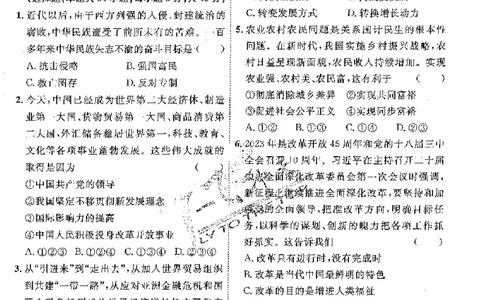 1.近代以后,由于西方列强的入侵,封建统治的
腐败,中华民族遭受了前所未有的苦难。一百
多年来中华民族矢志不渝的奋斗目标是( )
A.抗击侵略 B.强国富民
C.救亡图存 D.反对专制
2.今天,中国已经成为世界第二大经济体、制造
业第一大国、货物贸易第一大国、商品消费第
二大国,外汇储备稳居世界第一,科技、教育、
文化等各项事业蓬勃发展。这些伟大成就的
取得是因为 ( )
①中国共产党的领导
②我国坚定不移贯彻新发展理念
③国际影响力的提高
④中国人民积极投身改革开放事业
A.①②③ B.①②④ C.①③④ D.②③④
3.从“引进来”到“走出去”,从加入世界贸易组织
到共建“一带一路”,从应对亚洲金融危机和国
C.转变发展方式 D.转换增长动力
5.农业农村农民问题是关系国计民生的根本性
问题。在新时代,我国实施乡村振兴战略,农
村日益呈现新面貌,农民收入持续提高。实现
农业强、农村美、农民富,这有利于 ( )
①彻底消除城乡差距 ②实现共同富裕
③促进社会公平正义 ④实现同步富裕
A.①② B.②③ C.①④ D.②④
6.2023年是改革开放45周年和党的十八届三中
全会召开10周年。习近平在主持召开二十届
中央全面深化改革委员会第一次会议时强调,
新征程上继续推进全面深化改革,要坚持和加
强党的全面领导,把准改革方向,明确目标任
务,以科学的谋划、创新的魄力把各项工作抓
好抓实。这告诉我们 ( )
A.改革只有进行时,没有完成时
B.改革是当代中国最鲜明的特色
C.改革的目的是增进人类福祉